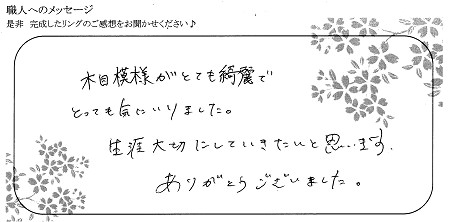 職人へのメッセージ
是非 完成したリングのご感想をお聞かせください♪
木目模様がとても綺麗で
とっても気にいりました。
生涯大切にしていきたいと思います.
ありがとうございました。